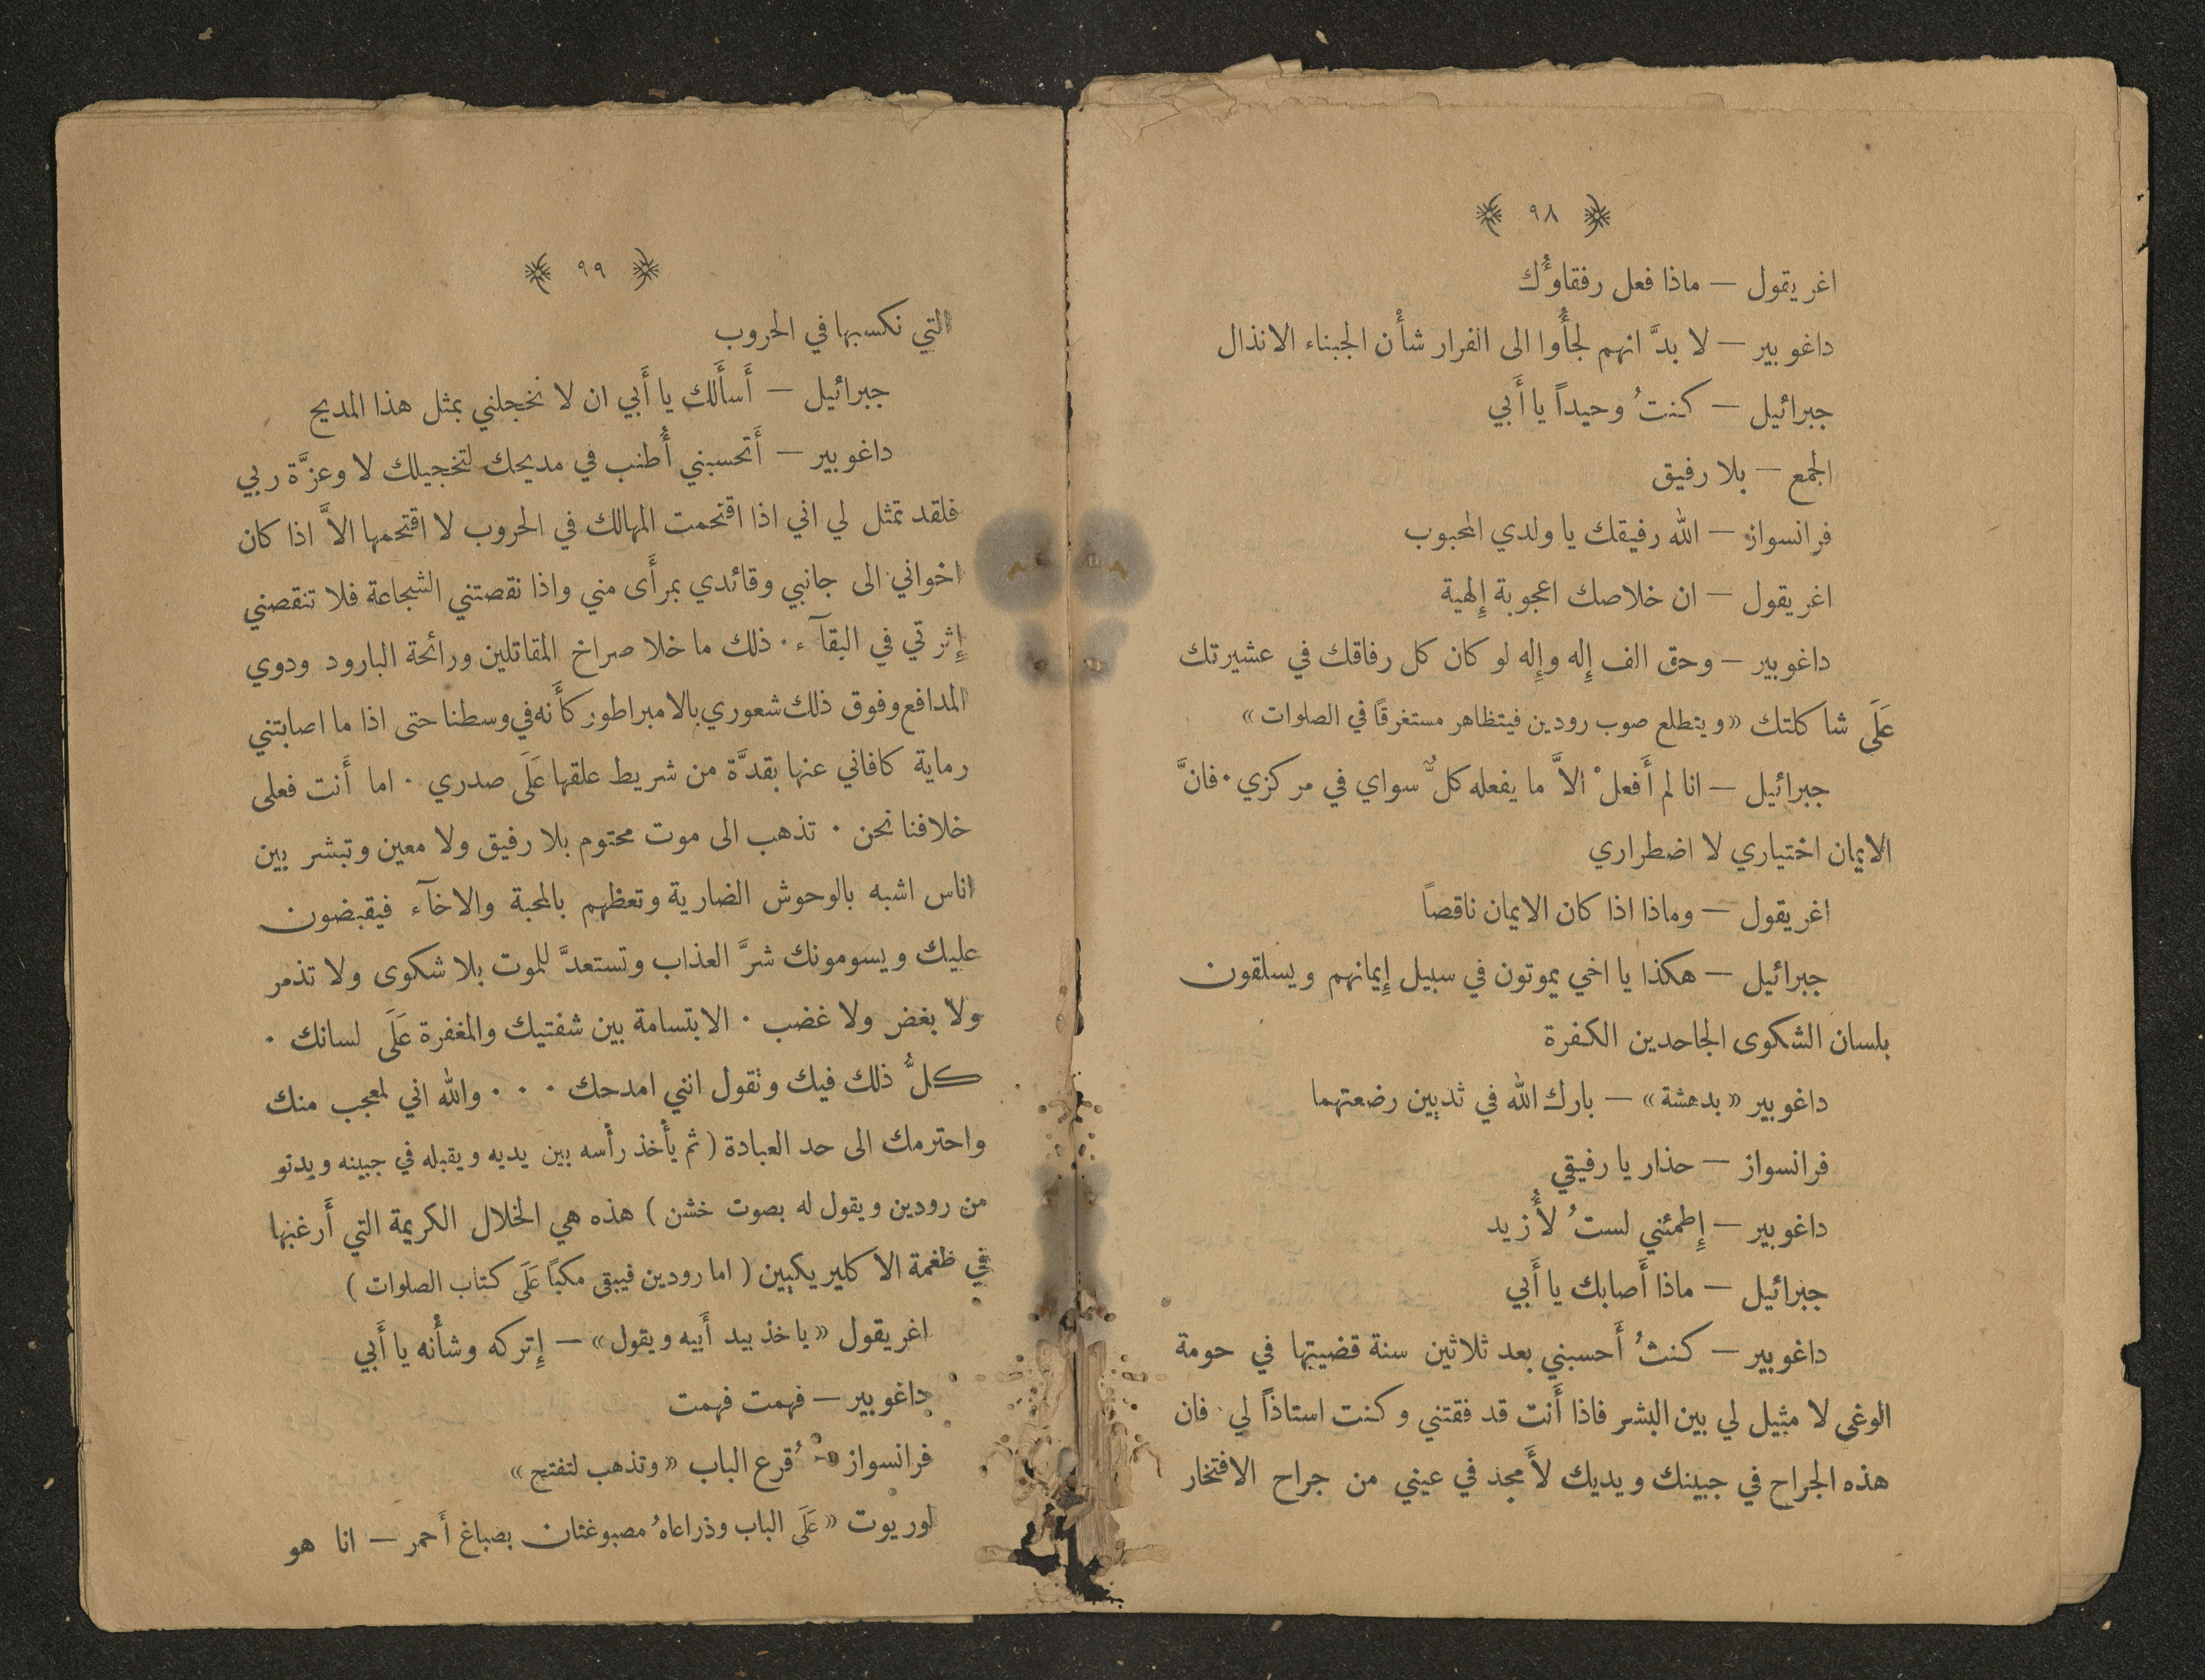 ٩٨
اغريقول — ماذا فعل رفقاؤُك
داغوبير — لا بدَّ انهم لجأُوا الى الفرار شأْن الجبناء الانذال
جبرائيل — كنتُ وحيداً يا أَبي
الجمع — بلا رفيق
فرانسواز — الله رفيقك يا ولدي المحبوب
اغريقول — ان خلاصك اعجوبة إِلهية
داغوبير — وحق الف إِله وإِله لو كان كل رفاقك في عشيرتك
عَلَى شاكلتك «ويتطلع صوب رودين فيتظاهر مستغرقاً في الصلوات»
جبرائيل — انا لم أَفعلْ الاَّ ما يفعله كلٌّ سواي في مركزي · فانَّ
الايمان اختياري لا اضطراري
اغريقول — وماذا اذا كان الايمان ناقصاً
جبرائيل — هكذا يا اخي يموتون في سبيل إِيمانهم ويسلقون
بلسان الشكوى الجاحدين الكفرة
داغوبير «بدهشة» — بارك الله في ثديين رضعتهما
فرانسواز — حذار يا رفيقي
داغوبير — إِطمئني لستُ لأَزيد
جبرائيل — ماذا أَصابك يا أَبي
داغوبير — كنتُ أَحسبني بعد ثلاثين سنة قضيتها في حومة
الوغى لا مثيل لي بين البشر فاذا أَنت قد فقتني وكنت استاذاً لي فان
هذه الجراح في جبينك ويديك لأَمجد في عيني من جراح الافتخار
٩٩
التي نكسبها في الحروب
جبرائيل — أَسأَلك يا أَبي ان لا تخجلني بمثل هذا المديح
داغوبير — أَتحسبني أُطنب في مديحك لتخجيلك لا وعزَّة ربي
فلقد تمثل لي اني اذا اقتحمت المهالك في الحروب لا اقتحمها الاَّ اذا كان
اخواني الى جانبي وقائدي بمرأَى مني واذا نقصتني الشجاعة فلا تنقصني
إِثرتي في البقآء · ذلك ما خلا صراخ المقاتلين ورائحة البارود ودوي
المدافع وفوق ذلك شعوري بالامبراطور كأَنه في وسطنا حتى اذا ما اصابتني
رماية كافاني عنها بقدَّة من شريط علقها عَلَى صدري · اما أَنت فعلى
خلافنا نحن · تذهب الى موت محتوم بلا رفيق ولا معين وتبشر بين
اناس اشبه بالوحوش الضارية وتعظهم بالمحبة والاخآء فيقبضون
عليك ويسومونك شرَّ العذاب وتستعدَّ للموت بلا شكوى ولا تذمر
ولا بغض ولا غضب · الابتسامة بين شفتيك والمغفرة عَلَى لسانك ·
كلُّ ذلك فيك وتقول انني امدحك · · · والله اني لمعجب منك
واحترمك الى حد العبادة (ثم يأْخذ رأْسه بين يديه ويقبله في جبينه ويدنو
من رودين ويقول له بصوت خشن) هذه هي الخلال الكريمة التي أَرغبها
في ظغمة الاكليريكيين (اما رودين فيبقى مكباً عَلَى كتاب الصلوات)
اغريقول «ياخذ بيد أَبيه ويقول» — إِتركه وشأْنه يا أَبي
داغوبير — فهمت فهمت
فرانسواز — قُرع الباب «وتذهب لتفتح»
لوريوت «عَلَى الباب وذراعاهُ مصبوغتان بصباغ أَحمر — انا هو